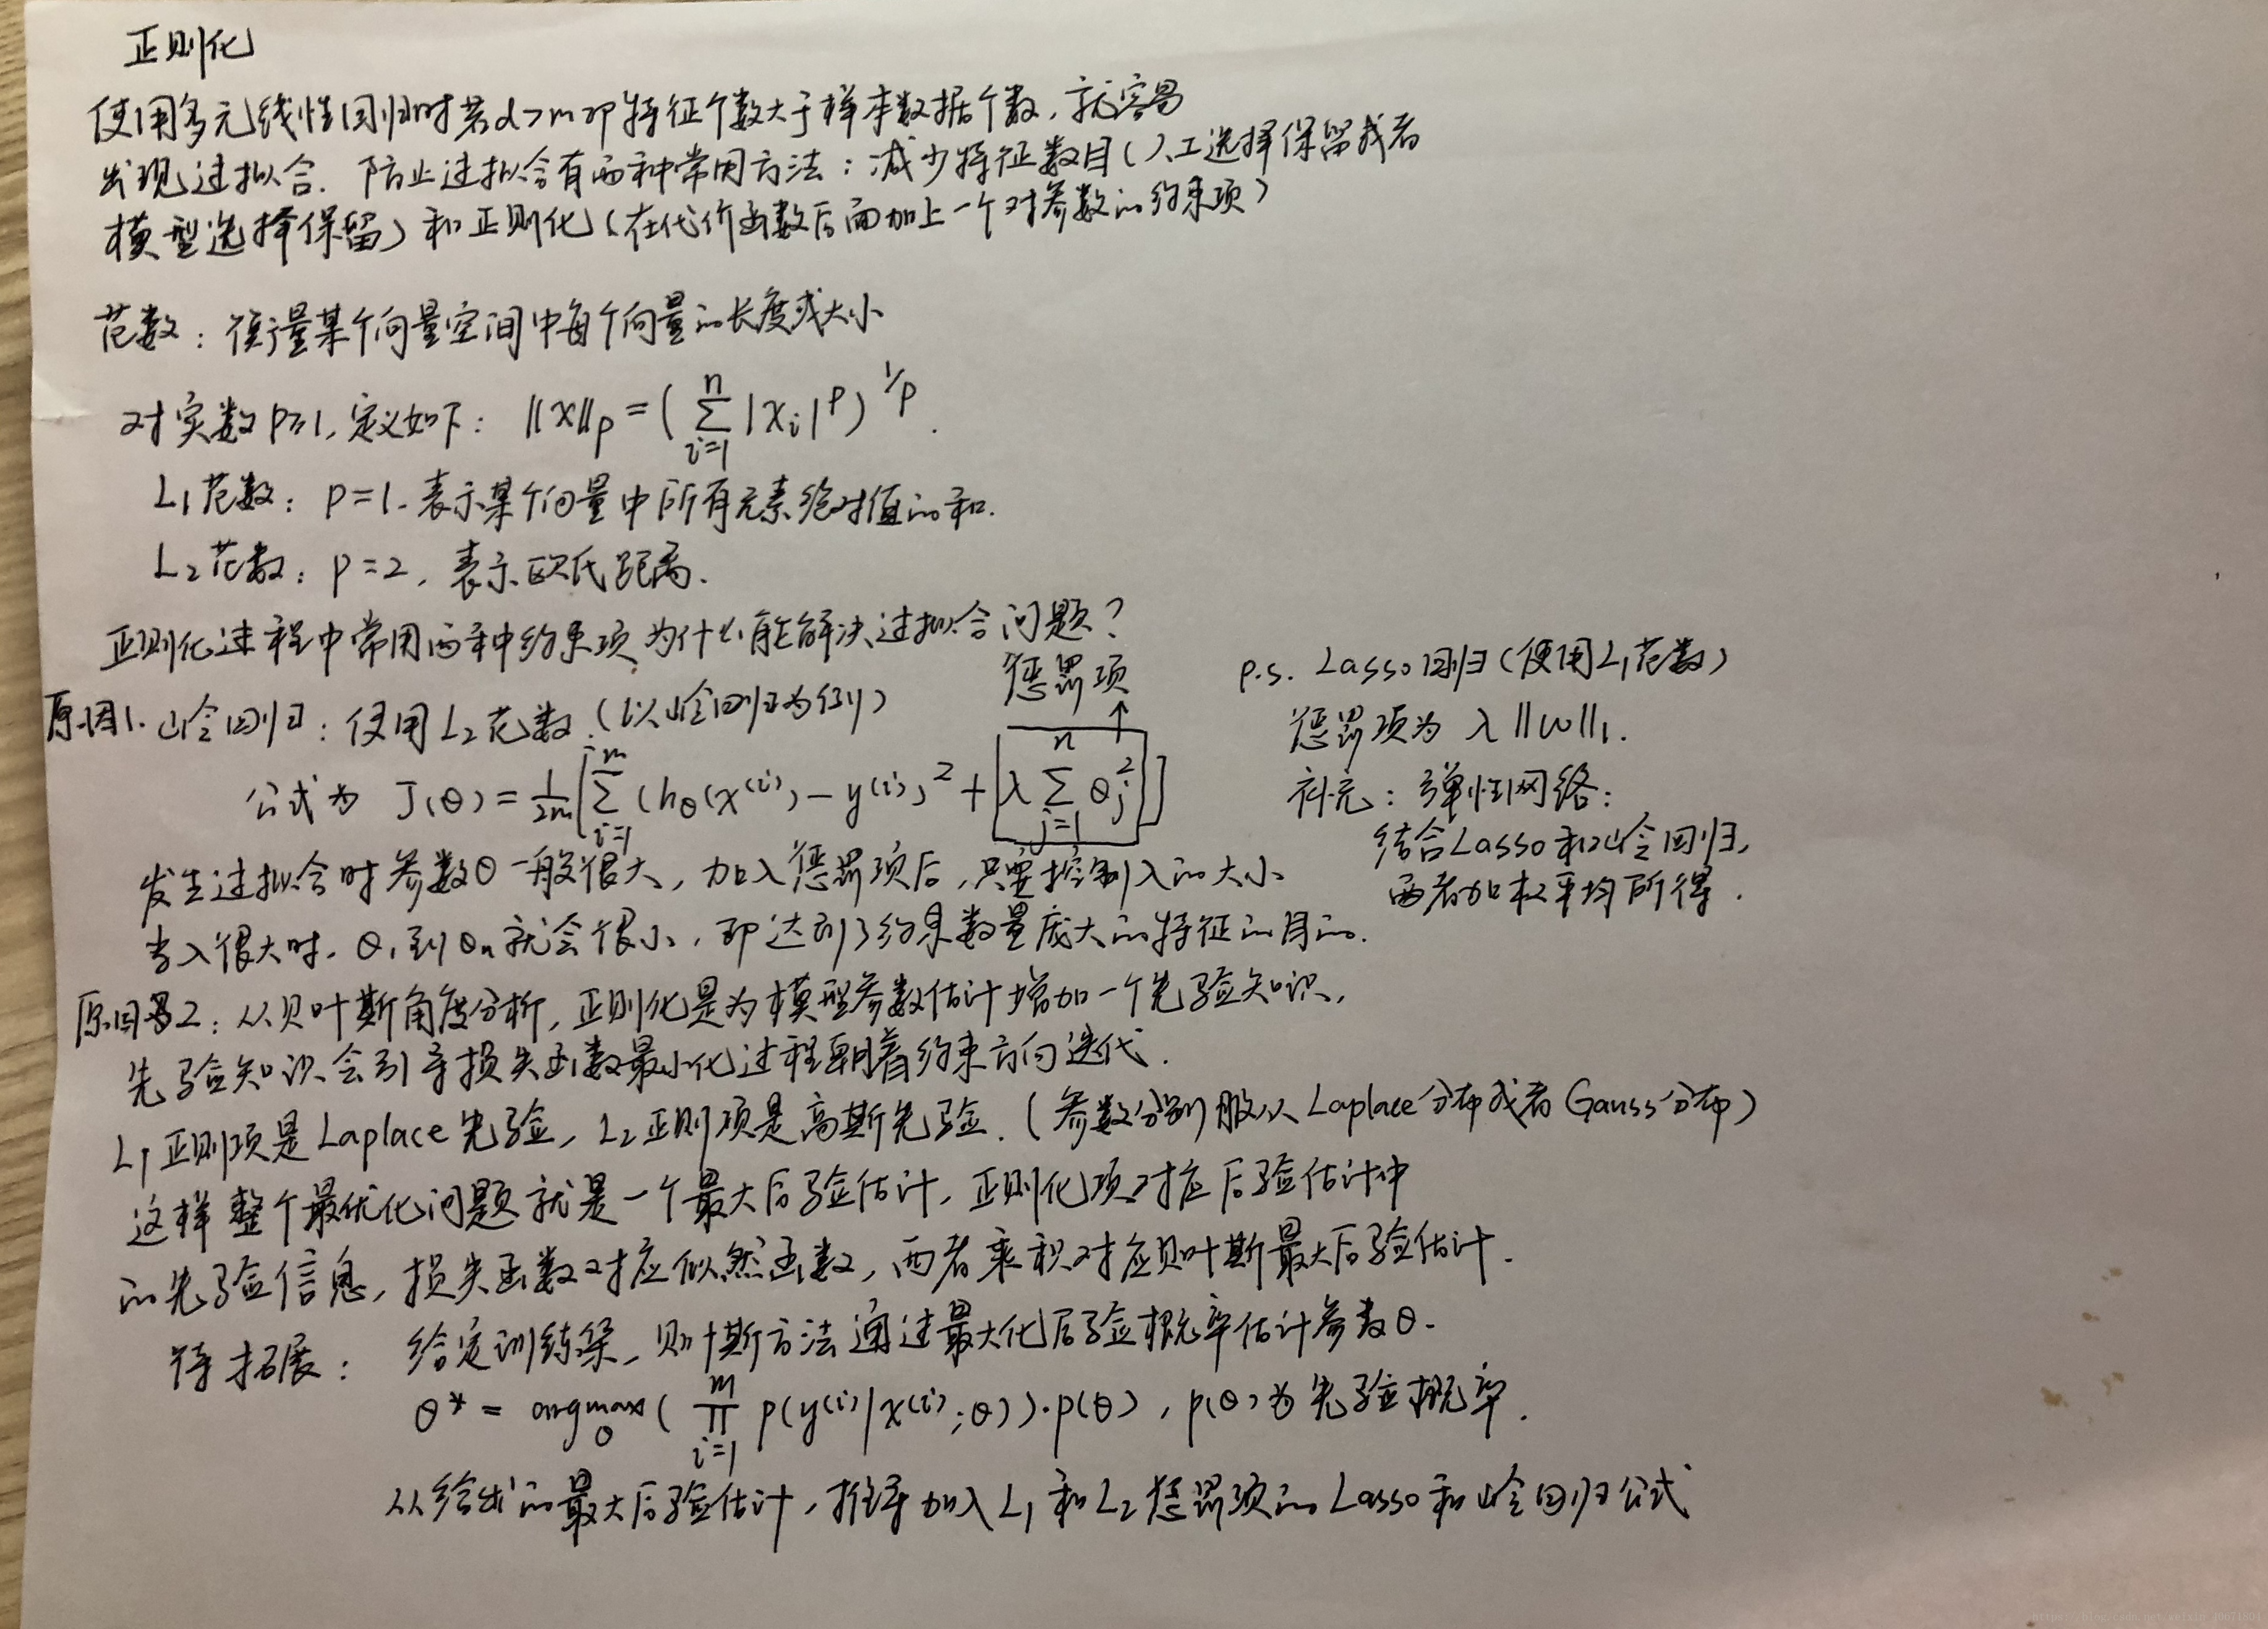 正则化
使用多元线性回归时若d>m即特征个数大于样本数据个数，就容易
出现过拟合．防止过拟合有两种常用方法：减少特征数目（人工选择保留或者
模型选择保留）和正则化（在代价函数后面加上一个对参数的约束项）
范数：衡量某个向量空间中每个向量的长度或大小
对实数p≥1，定义如下：‖x‖p = ( ∑_{i=1}^{n} |xi|^p )^{1/p}．
L1范数：p=1．表示某个向量中所有元素绝对值的和．
L2范数：p=2，表示欧氏距离．
正则化过程中常用两种约束项为什么能解决过拟合问题？
原因1．岭回归：使用L2范数．（以岭回归为例）
惩罚项
↑
公式为 J(θ) = 1/2m [ ∑_{i=1}^{m} (hθ(x^(i)) − y^(i))^2 + λ ∑_{j=1}^{n} θj^2 ]
发生过拟合时参数θ一般很大，加入惩罚项后，只要控制λ的大小
当λ很大时．θ1到θn就会很小，即达到了约束数量庞大的特征的目的．
p.s. Lasso回归（使用L1范数）
惩罚项为 λ‖w‖1．
补充：弹性网络：
结合Lasso和岭回归，
两者加权平均所得．
原因2：从贝叶斯角度分析，正则化是为模型参数估计增加一个先验知识，
先验知识会引导损失函数最小化过程朝着约束方向迭代．
L1正则项是Laplace先验，L2正则项是高斯先验．（参数分别服从Laplace分布或者Gauss分布）
这样整个最优化问题就是一个最大后验估计，正则化项对应后验估计中
的先验信息，损失函数对应似然函数，两者乘积对应贝叶斯最大后验估计．
待拓展： 给定训练集，贝叶斯方法通过最大化后验概率估计参数θ．
θ* = argmax_θ ( ∏_{i=1}^{m} p(y^(i)|x^(i);θ))·p(θ)，p(θ)为先验概率．
从给出的最大后验估计，推导加入L1和L2惩罚项的Lasso和岭回归公式